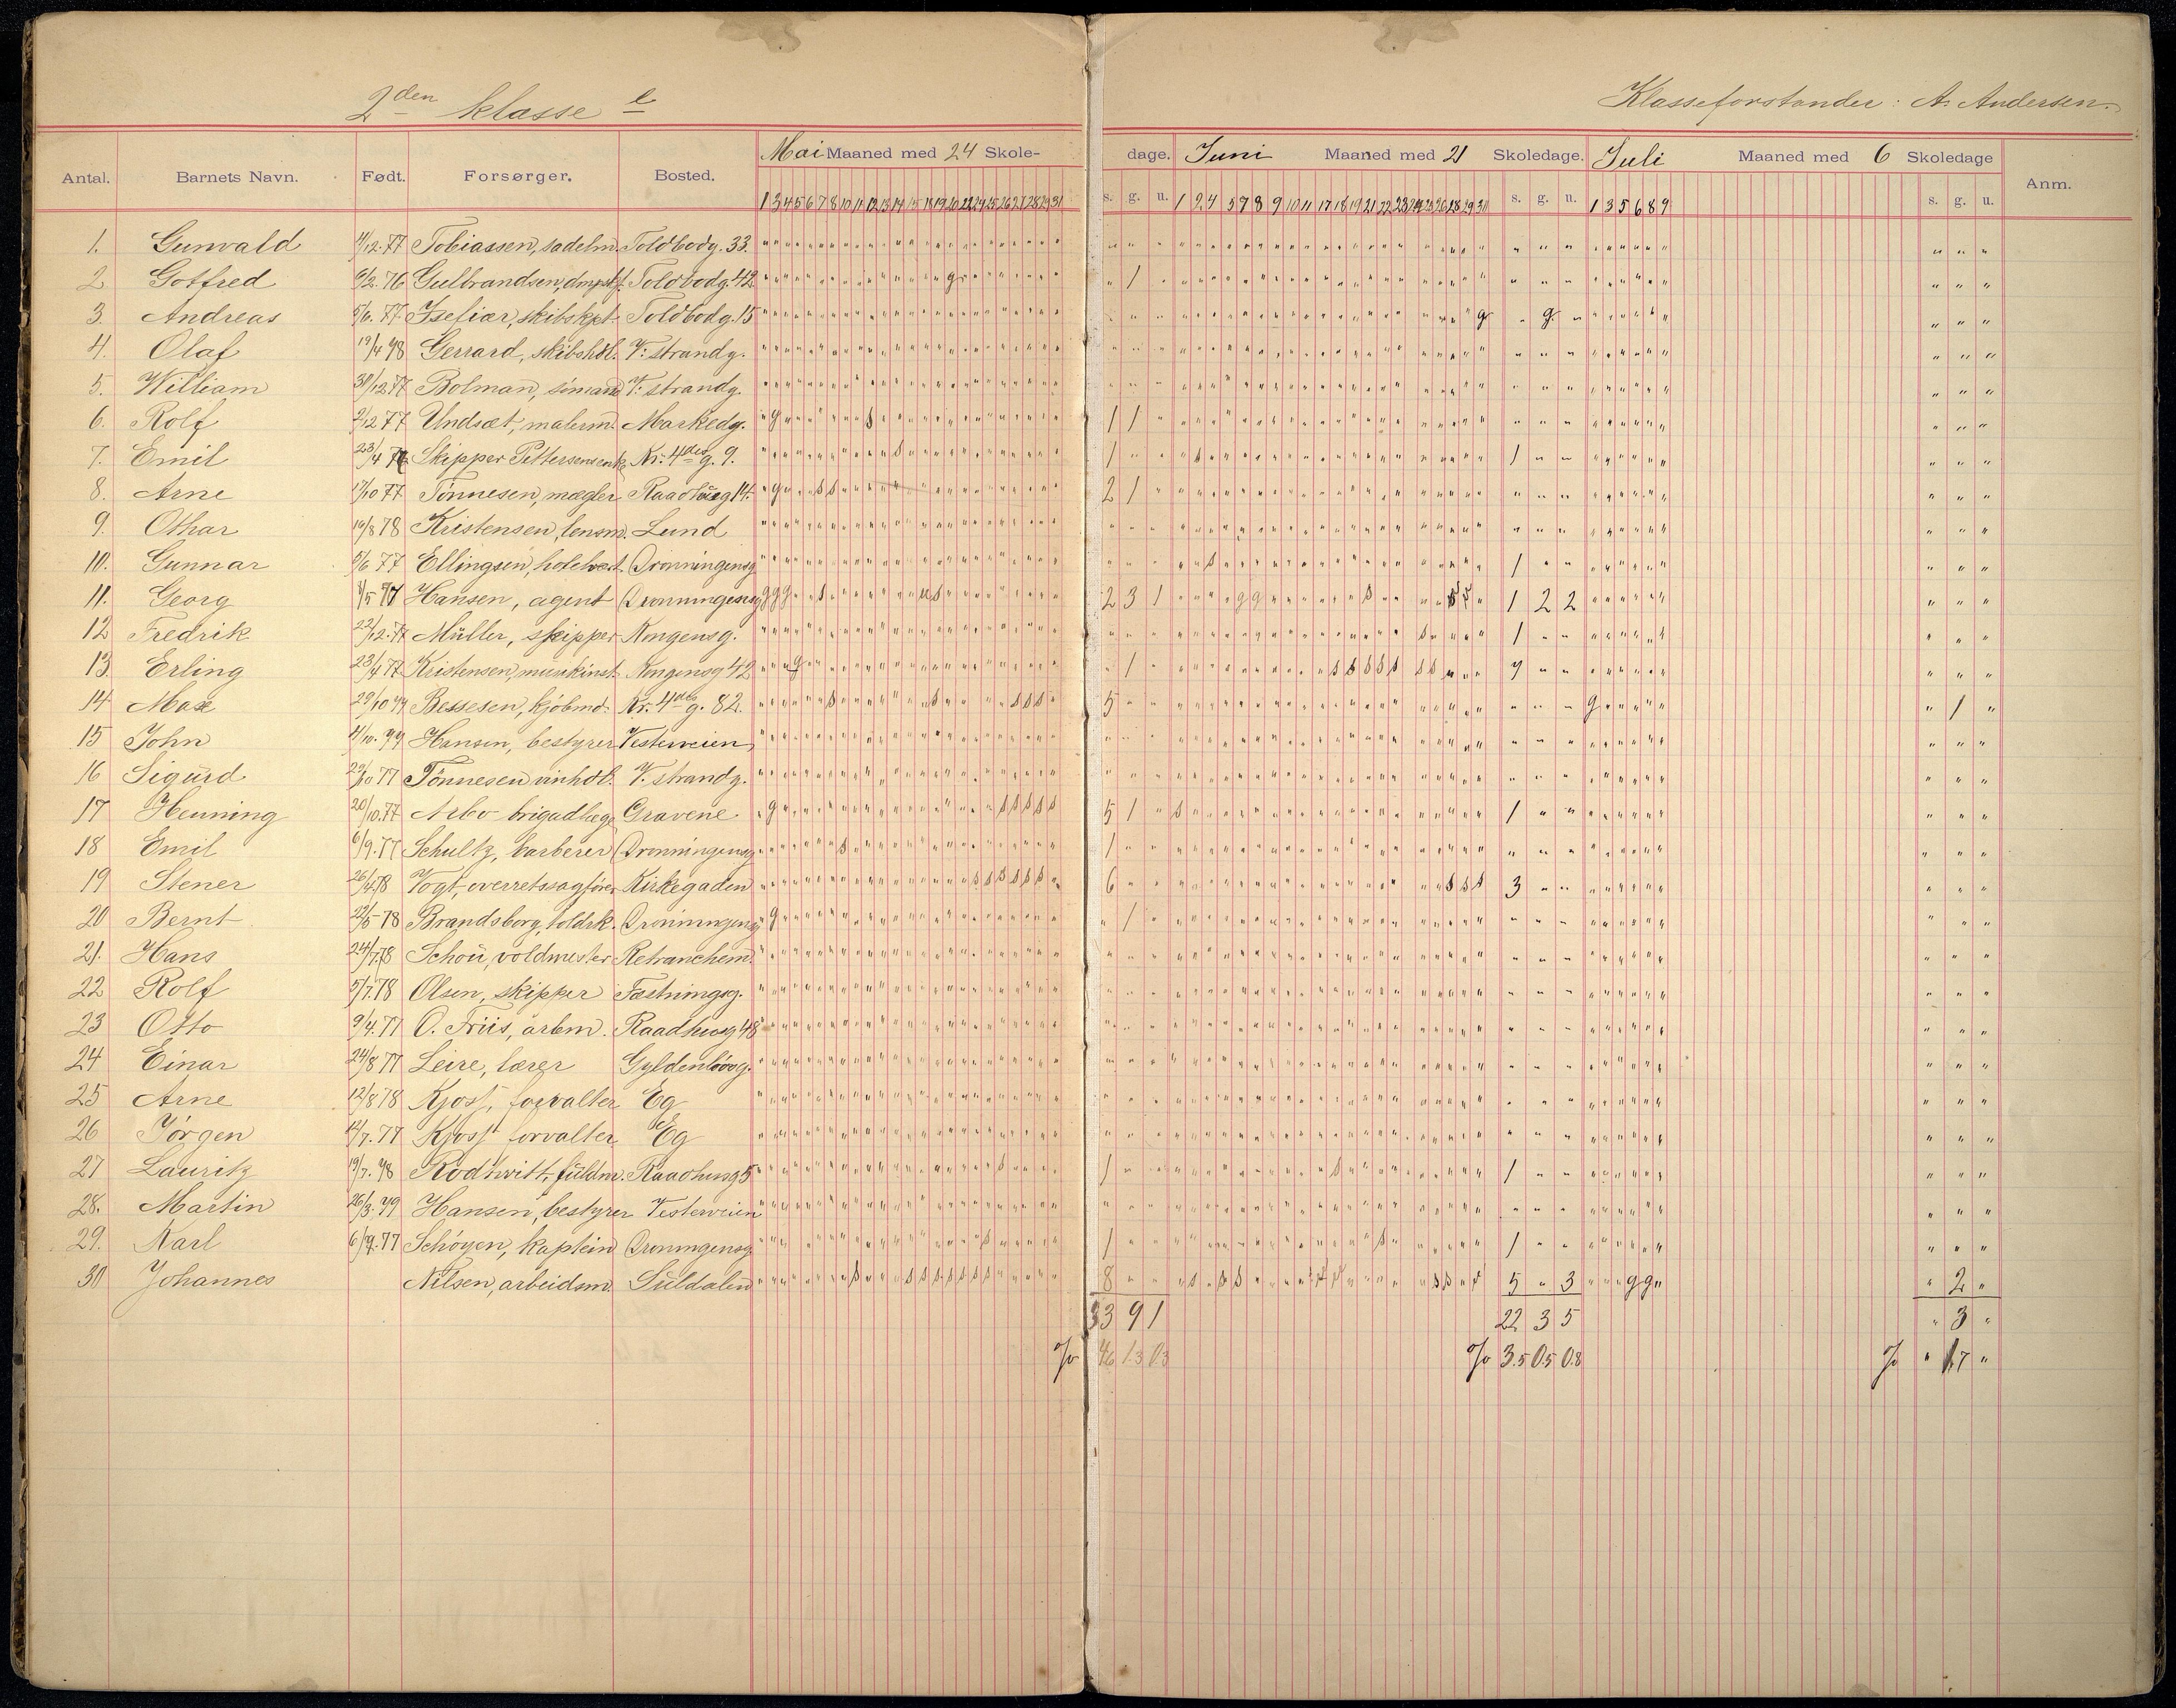 2den klasse e
Klasseforstander: A. Andersen.
Antal. Barnets Navn. Født. Forsørger. Bosted. Mai Maaned med 24 Skole- dage. Juni Maaned med 21 Skoledage. Juli Maaned med 6 Skoledage Anm.
1 3 4 5 6 7 8 10 11 12 13 14 15 18 19 20 22 24 25 26 27 28 29 31 s. g. u. 1 2 4 5 7 8 9 10 11 17 18 19 21 22 23 24 25 26 28 29 30 s. g. u. 1 3 5 6 8 9 s. g. u.
1. Gunvald 11/12.77 Tobiassen, sadelm. Toldbodg. 33.
2 Gotfred 6/2.76 Gulbrandsen, Toldbodg. 42 g " 1 "
3. Andreas 5/6.77 skibskpt. Toldbodg. 15 g " g "
4. Olaf 19/4 78 Gerrard, skibshdl. V. strandg.
5. William 30/12 77 Bolman, sømand V. strandg.
6. Rolf 2/12 77 Undsæt, malerm. Markedg. g s 1 1 "
7. Emil 23/4 Skipper Pettersens Kr. 4des g. 9. s 1 " " s 1 " "
8. Arne 17/10 77 Tønnesen, mægler Raadhusg 14. g s s 2 1 "
9. Othar 19/8 78 Kristensen, lensm. Lund
10. Gunnar 5/6 77 Ellingsen, hotelvært. Dronningensg s 1 " "
11. Georg /5 77 Hansen, agent Dronningensg g g g s u s 2 3 1 g g s 1 2 2
12 Fredrik 22/12.77 Müller, skipper Kongensg. s 1 " "
13 Erling 23/4 77 Kristensen, Kongensg 42 g " 1 " s s s s s s s 7 " "
14 Max 29/10 77 Bessesen, kjøbmd. Kr. 4des g. 82. s s s s s 5 " " g " 1 "
15 John 11/10. Hansen, bestyrer Vesterveien
16 Sigurd 29/10 77 Tønnesen vinhdl. V. strandg.
17 Henning 20/10.77 Arbo brigadlæge Gravene g s s s s s 5 1 " s 1 " "
18 Emil 6/9.77 Schultz, barberer Dronningensg s 1 " "
19 Stener 26/4.78 Vogt, overretssagfører Kirkegaden s s s s s s 6 " " s s s 3 " "
20 Bernt 22/5 78 Brandsborg, toldrk. Dronningensg g " 1 "
21. Hans 24/7.78 Schou, voldmester Retranchem.
22 Rolf 5/7.78 Olsen, skipper Fæstningsg.
23 Otto 9/4.77 O. Friis, arbm. Raadhusg 48
24 Einar 24/8 77 Leire, lærer Gyldenløvsg.
25 Arne 12/8 78 Kjoss, forvalter Eg
26 Jörgen 12/7.77 Kjoss forvalter Eg
27 Lauritz 19/7.78 Rodtwitt, fuldm. Raadhusg 5 s 1 " " s 1 " "
28. Martin 26/3.79 Hansen, bestyrer Vesterveien
29. Karl 6/9.77 Schøyen, kaptein Dronningensg s 1 " " s 1 " "
30 Johannes Nilsen, arbeidsm. Suldalen s s s s s s s s 8 " " 5 " 3 g g " 2 "
33 9 1 22 3 5 " 3 "
% 4.6 1.3 0.3 % 3.5 0.5 0.8 % " 1.7 "